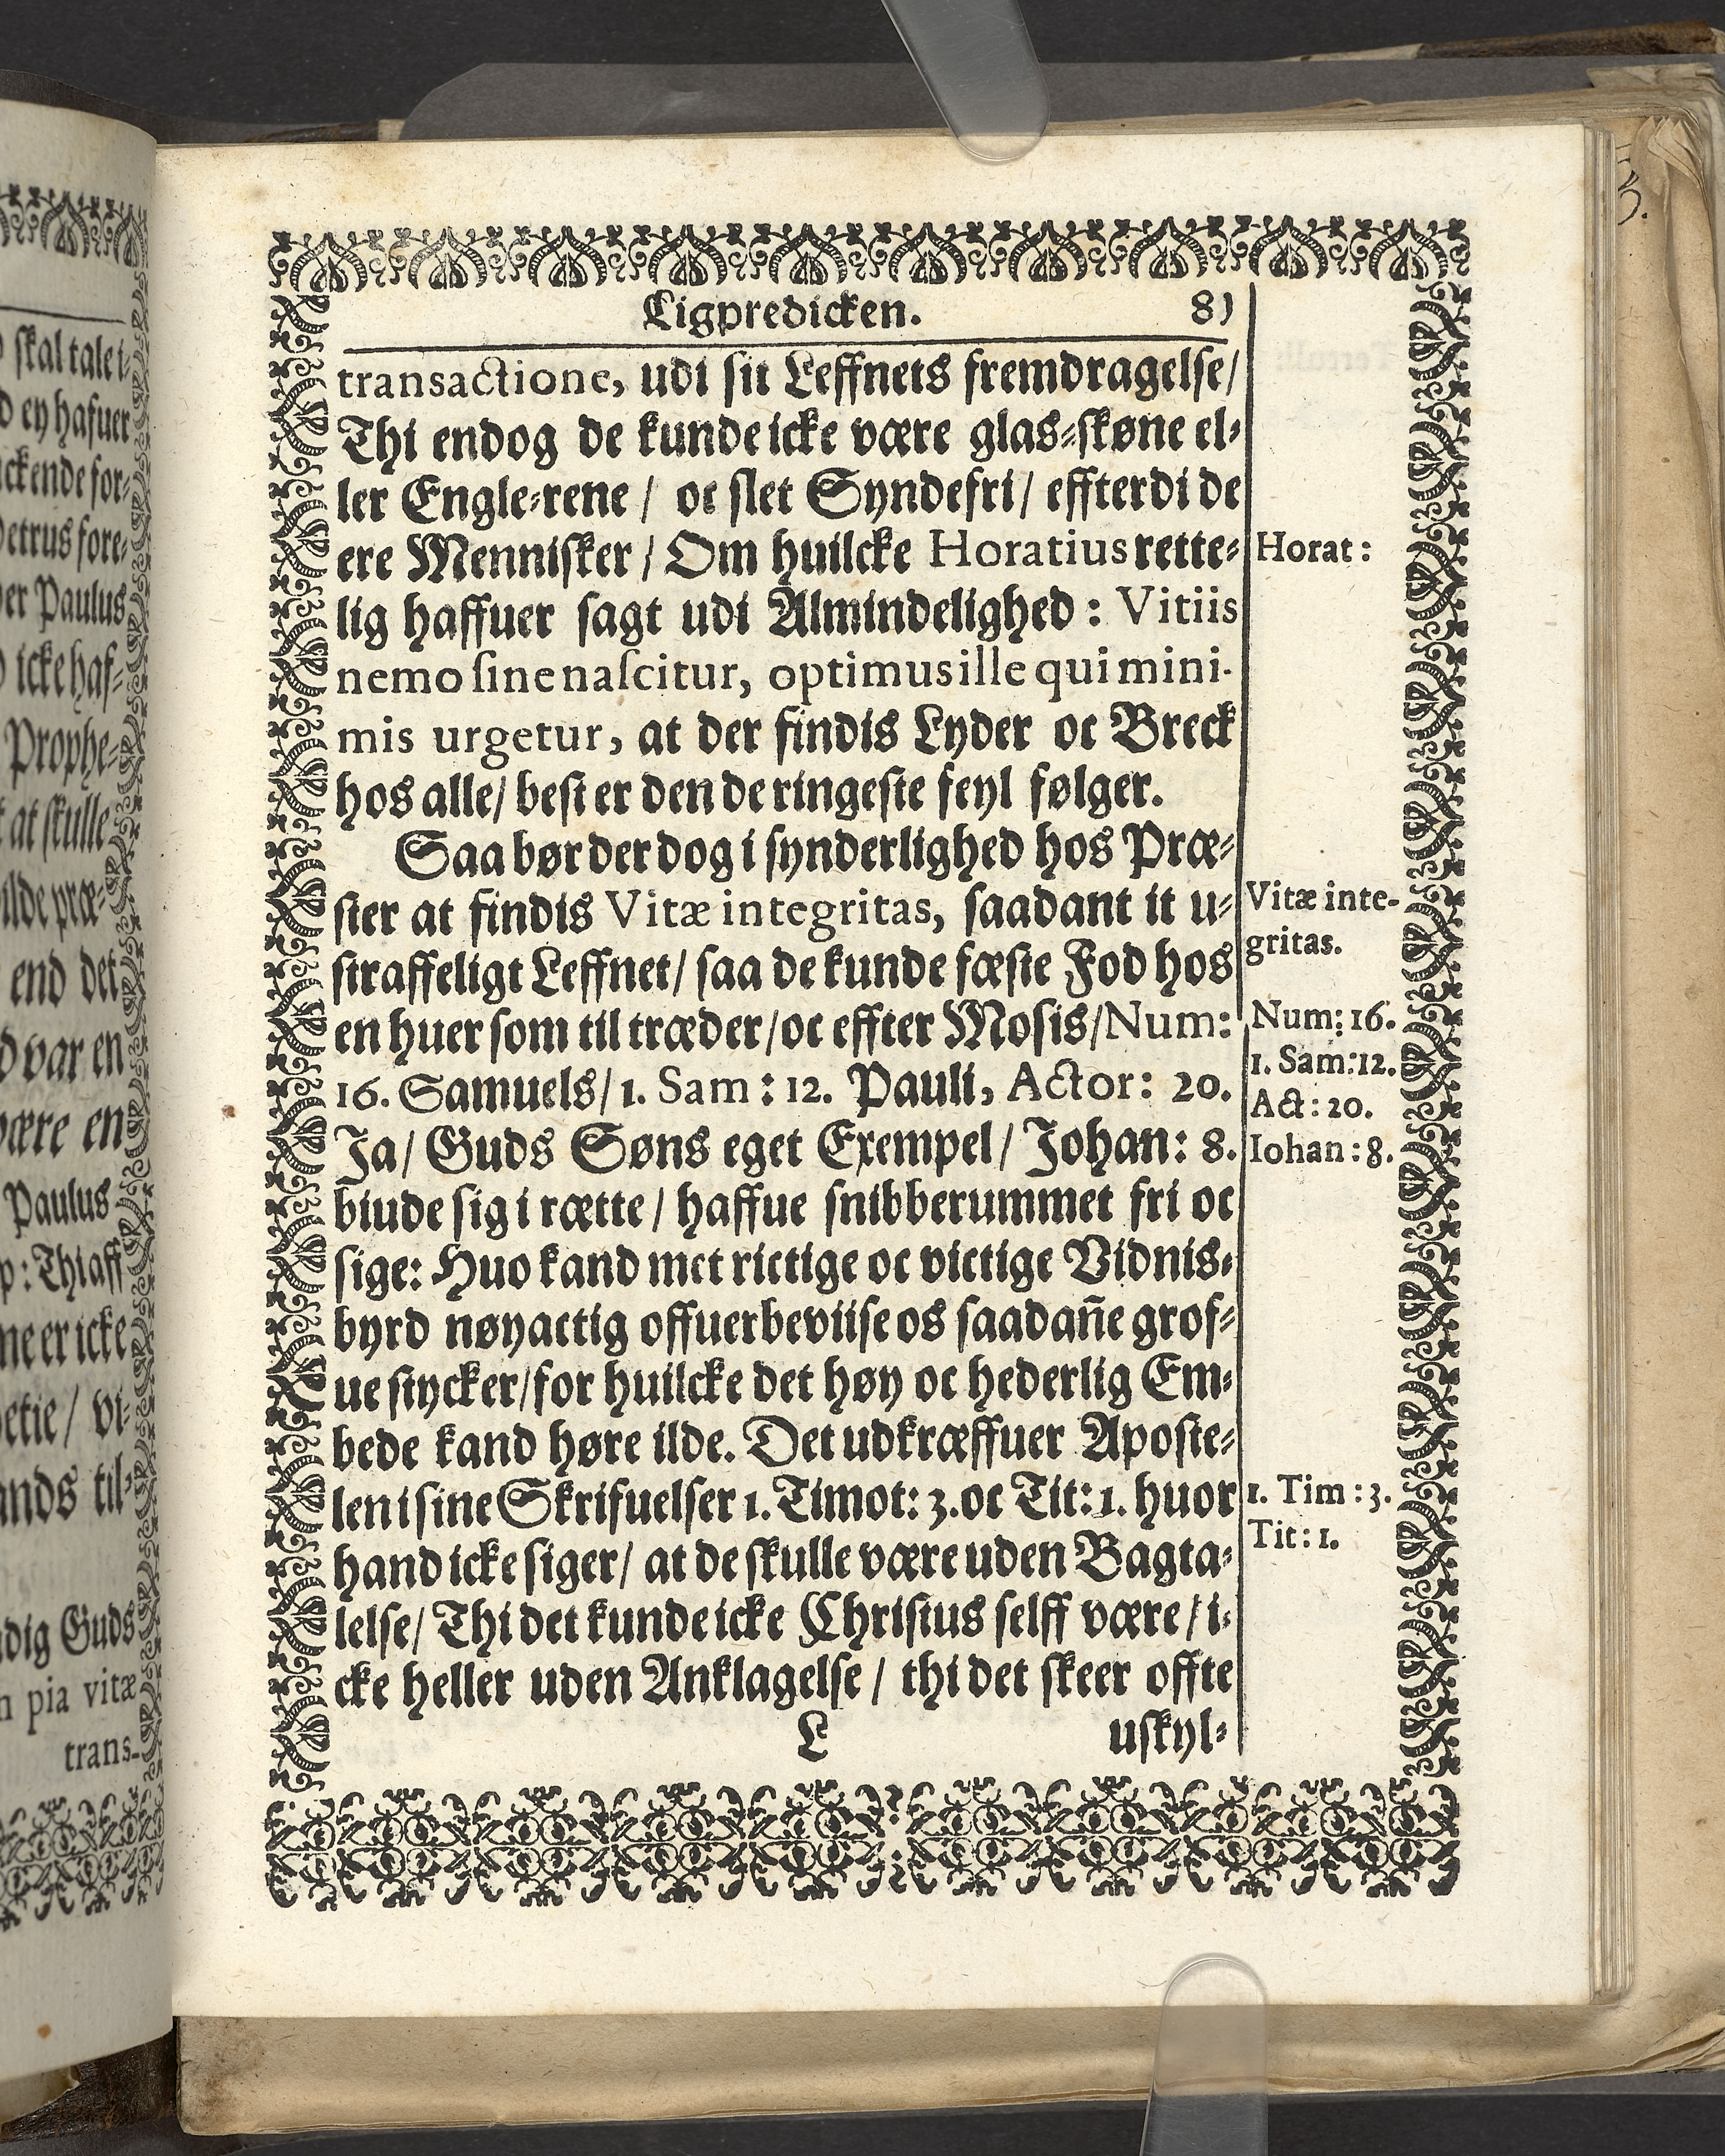 Ligpredicken. 81
transactione, udi sit Leffnets fremdragelse/
Thi endog de kunde icke være glas-skøne el-
ler Engle-rene / oc slet Syndefri/ effterdi de
ere Mennisker / Om huilcke Horatius rette-
lig haffuer sagt udi Almindelighed : Vitiis
nemo sine nascitur, optimus ille qui mini-
mis urgetur, at der findis Lyder oc Breck
hos alle/ best er den de ringeste feyl følger.
Saa bør der dog i synderlighed hos Præ-
ster at findis Vitæ integritas, saadant it u-
straffeligt Leffnet/ saa de kunde fæste Fod hos
en huer som til træder/oc effter Mosis/Num:
16. Samuels/ 1. Sam : 12. Pauli, Actor: 20.
Ja/ Guds Søns eget Exempel/ Johan: 8.
biude sig i rætte / haffue snibberummet fri oc
sige: Huo kand met rictige oc victige Vidnis-
byrd nøyactig offuerbeviise os saadañe grof-
ue stycker/for huilcke det høy oc hederlig Em-
bede kand høre ilde. Det udkræffuer Aposte-
len i sine Skrifuelser 1. Timot: 3. oc Tit: 1. huor
hand icke siger/ at de skulle være uden Bagta-
lelse/ Thi det kunde icke Christus selff være / i-
cke heller uden Anklagelse / thi det skeer offte
L uskyl-
Horat :
Vitæ inte-
gritas.
Num: 16.
1. Sam:12.
Act : 20.
Iohan : 8.
1. Tim : 3.
Tit : 1.
skal tale i-
ey hafuer
ckende for-
Petrus fore-
Paulus
icke haf-
Prophe-
at skulle
ilde præ-
end det
var en
være en
Paulus
: Thi aff
ne er icke
/ vi-
ands til-
dig Guds
pia vitæ
trans-
3.